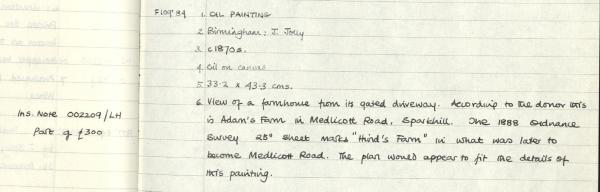 F109'84 1. OIL PAINTING
2. Birmingham: J. Jolly
3. c1870s.
4. Oil on canvas
5. 33.2 x 43.3 cms.
6. View of a farmhouse from its gated driveway. According to the donor this
is Adam's Farm in Medlicott Road, Sparkhill. The 1888 Ordnance
Survey 25" sheet marks "Hind's Farm" in what was later to
become Medlicott Road. The plan would appear to fit the details of
this painting.
Ins. Note 002209/LH
Part of £300